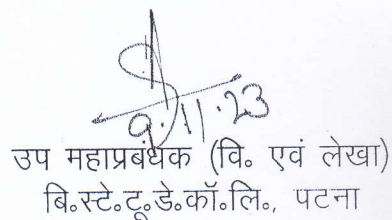 9.11.23
उप महाप्रबंधक (वि० एवं लेखा)
बि०स्टे०टू०डे०कॉ०लि०, पटना